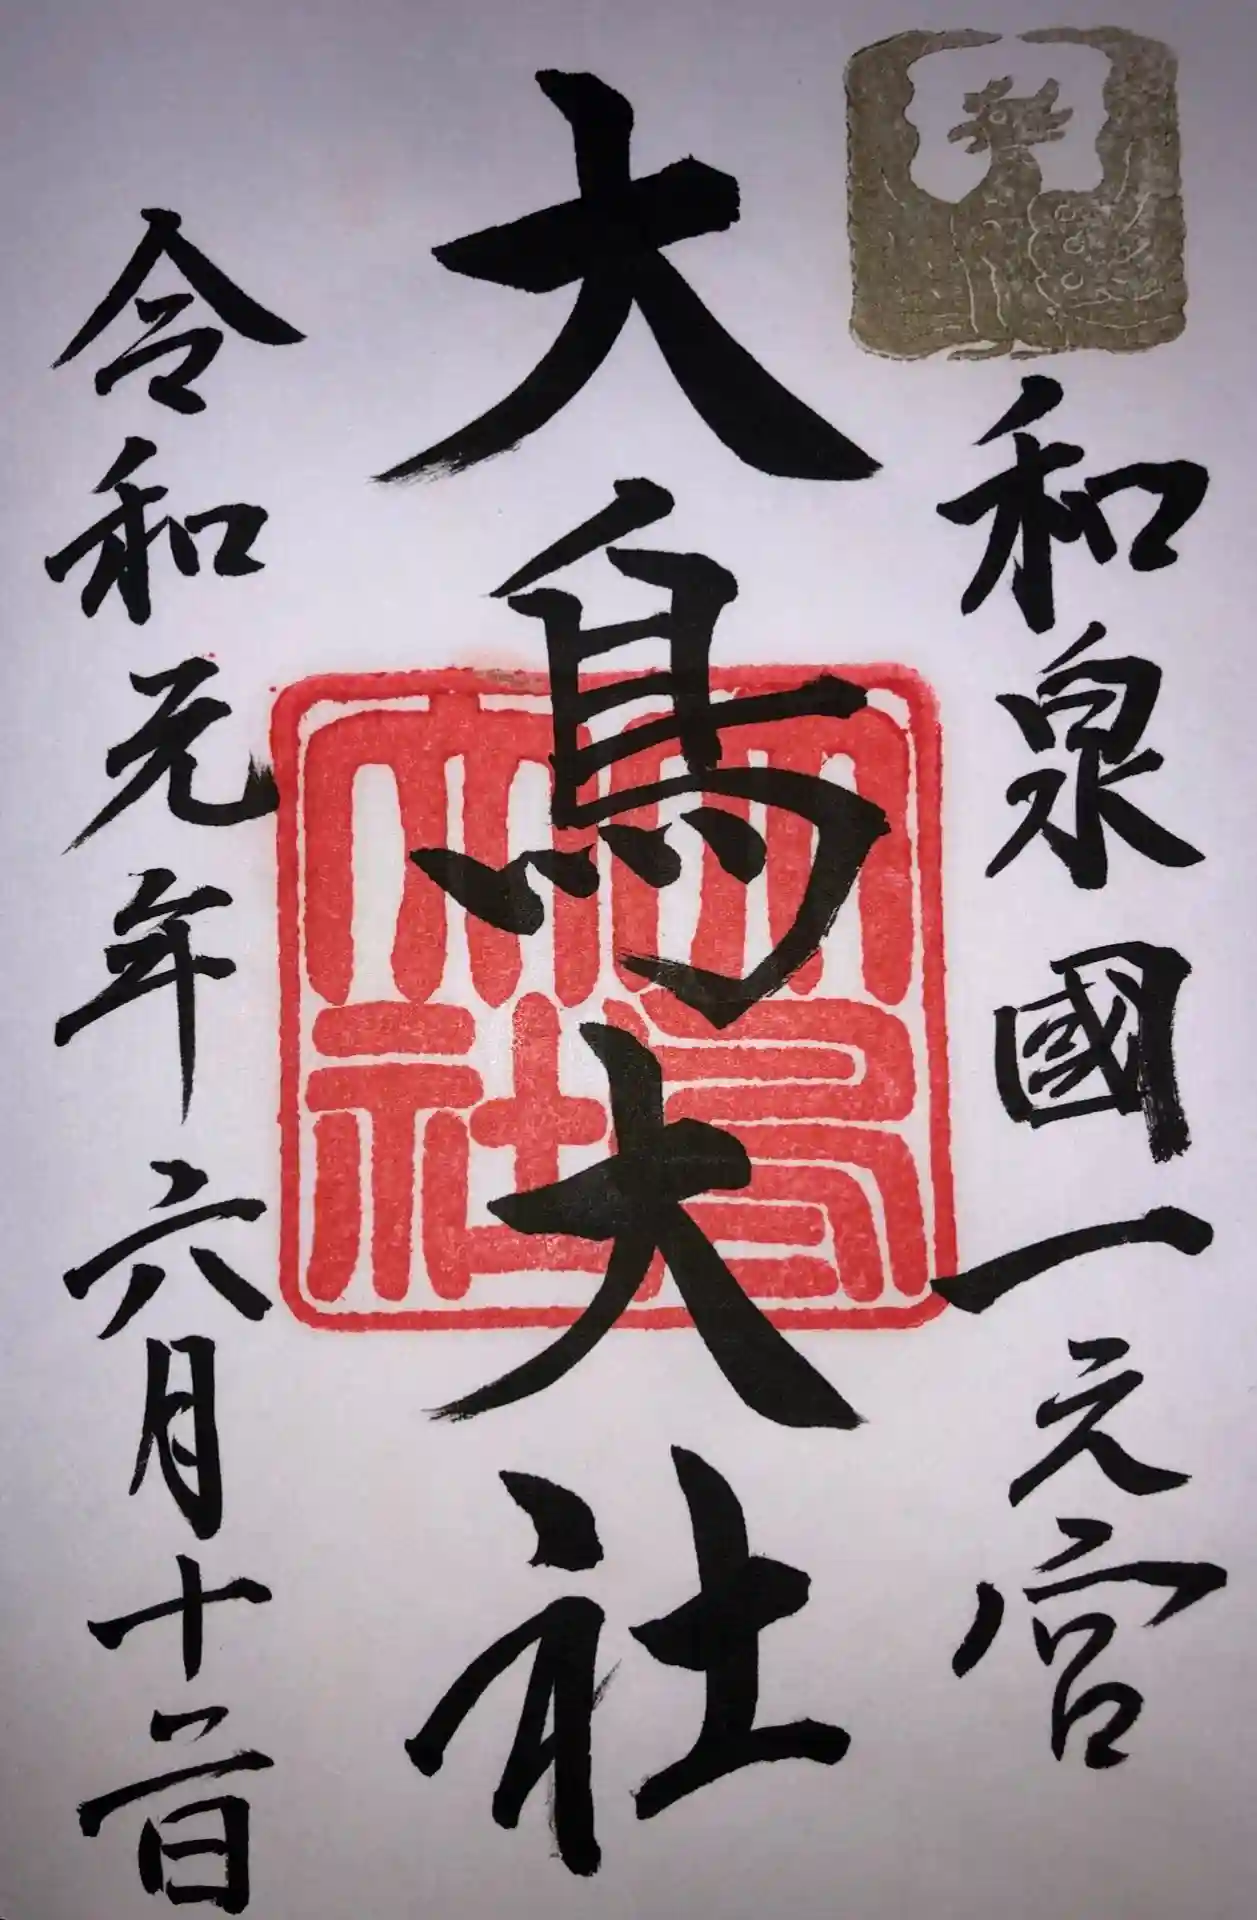 和泉國一之宮
大鳥大社
令和元年六月十二日